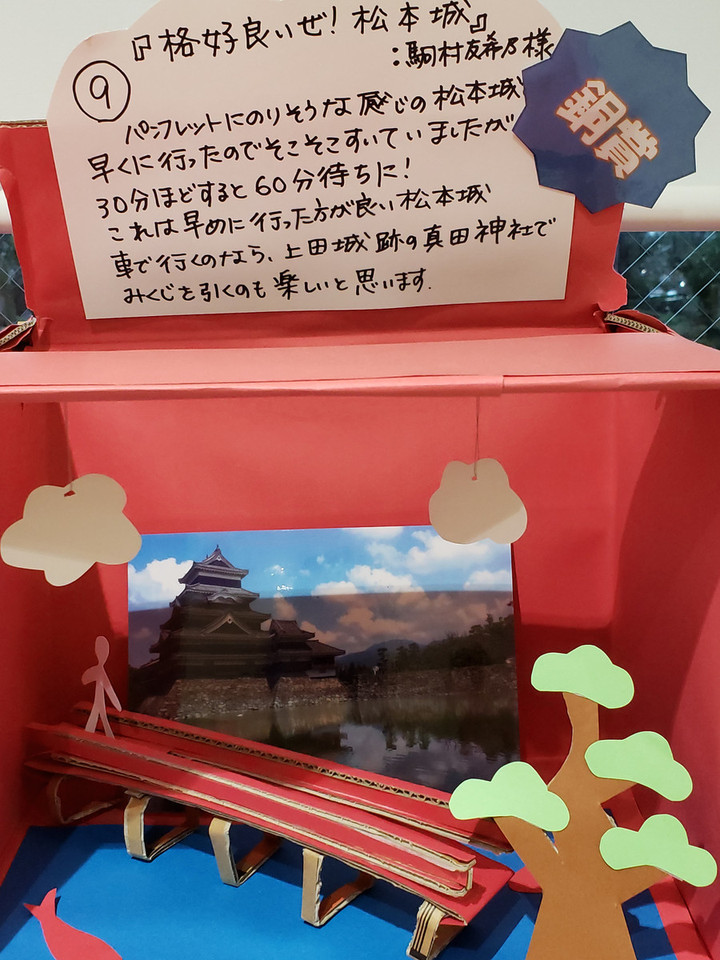 『格好良いぜ！松本城』
：駒村友希乃様
⑨
銅賞
パンフレットにのりそうな感じの松本城
早くに行ったのでそこそこすいていましたが
30分ほどすると60分待ちに！
これは早めに行った方が良い松本城
車で行くのなら、上田城跡の真田神社で
みくじを引くのも楽しいと思います.